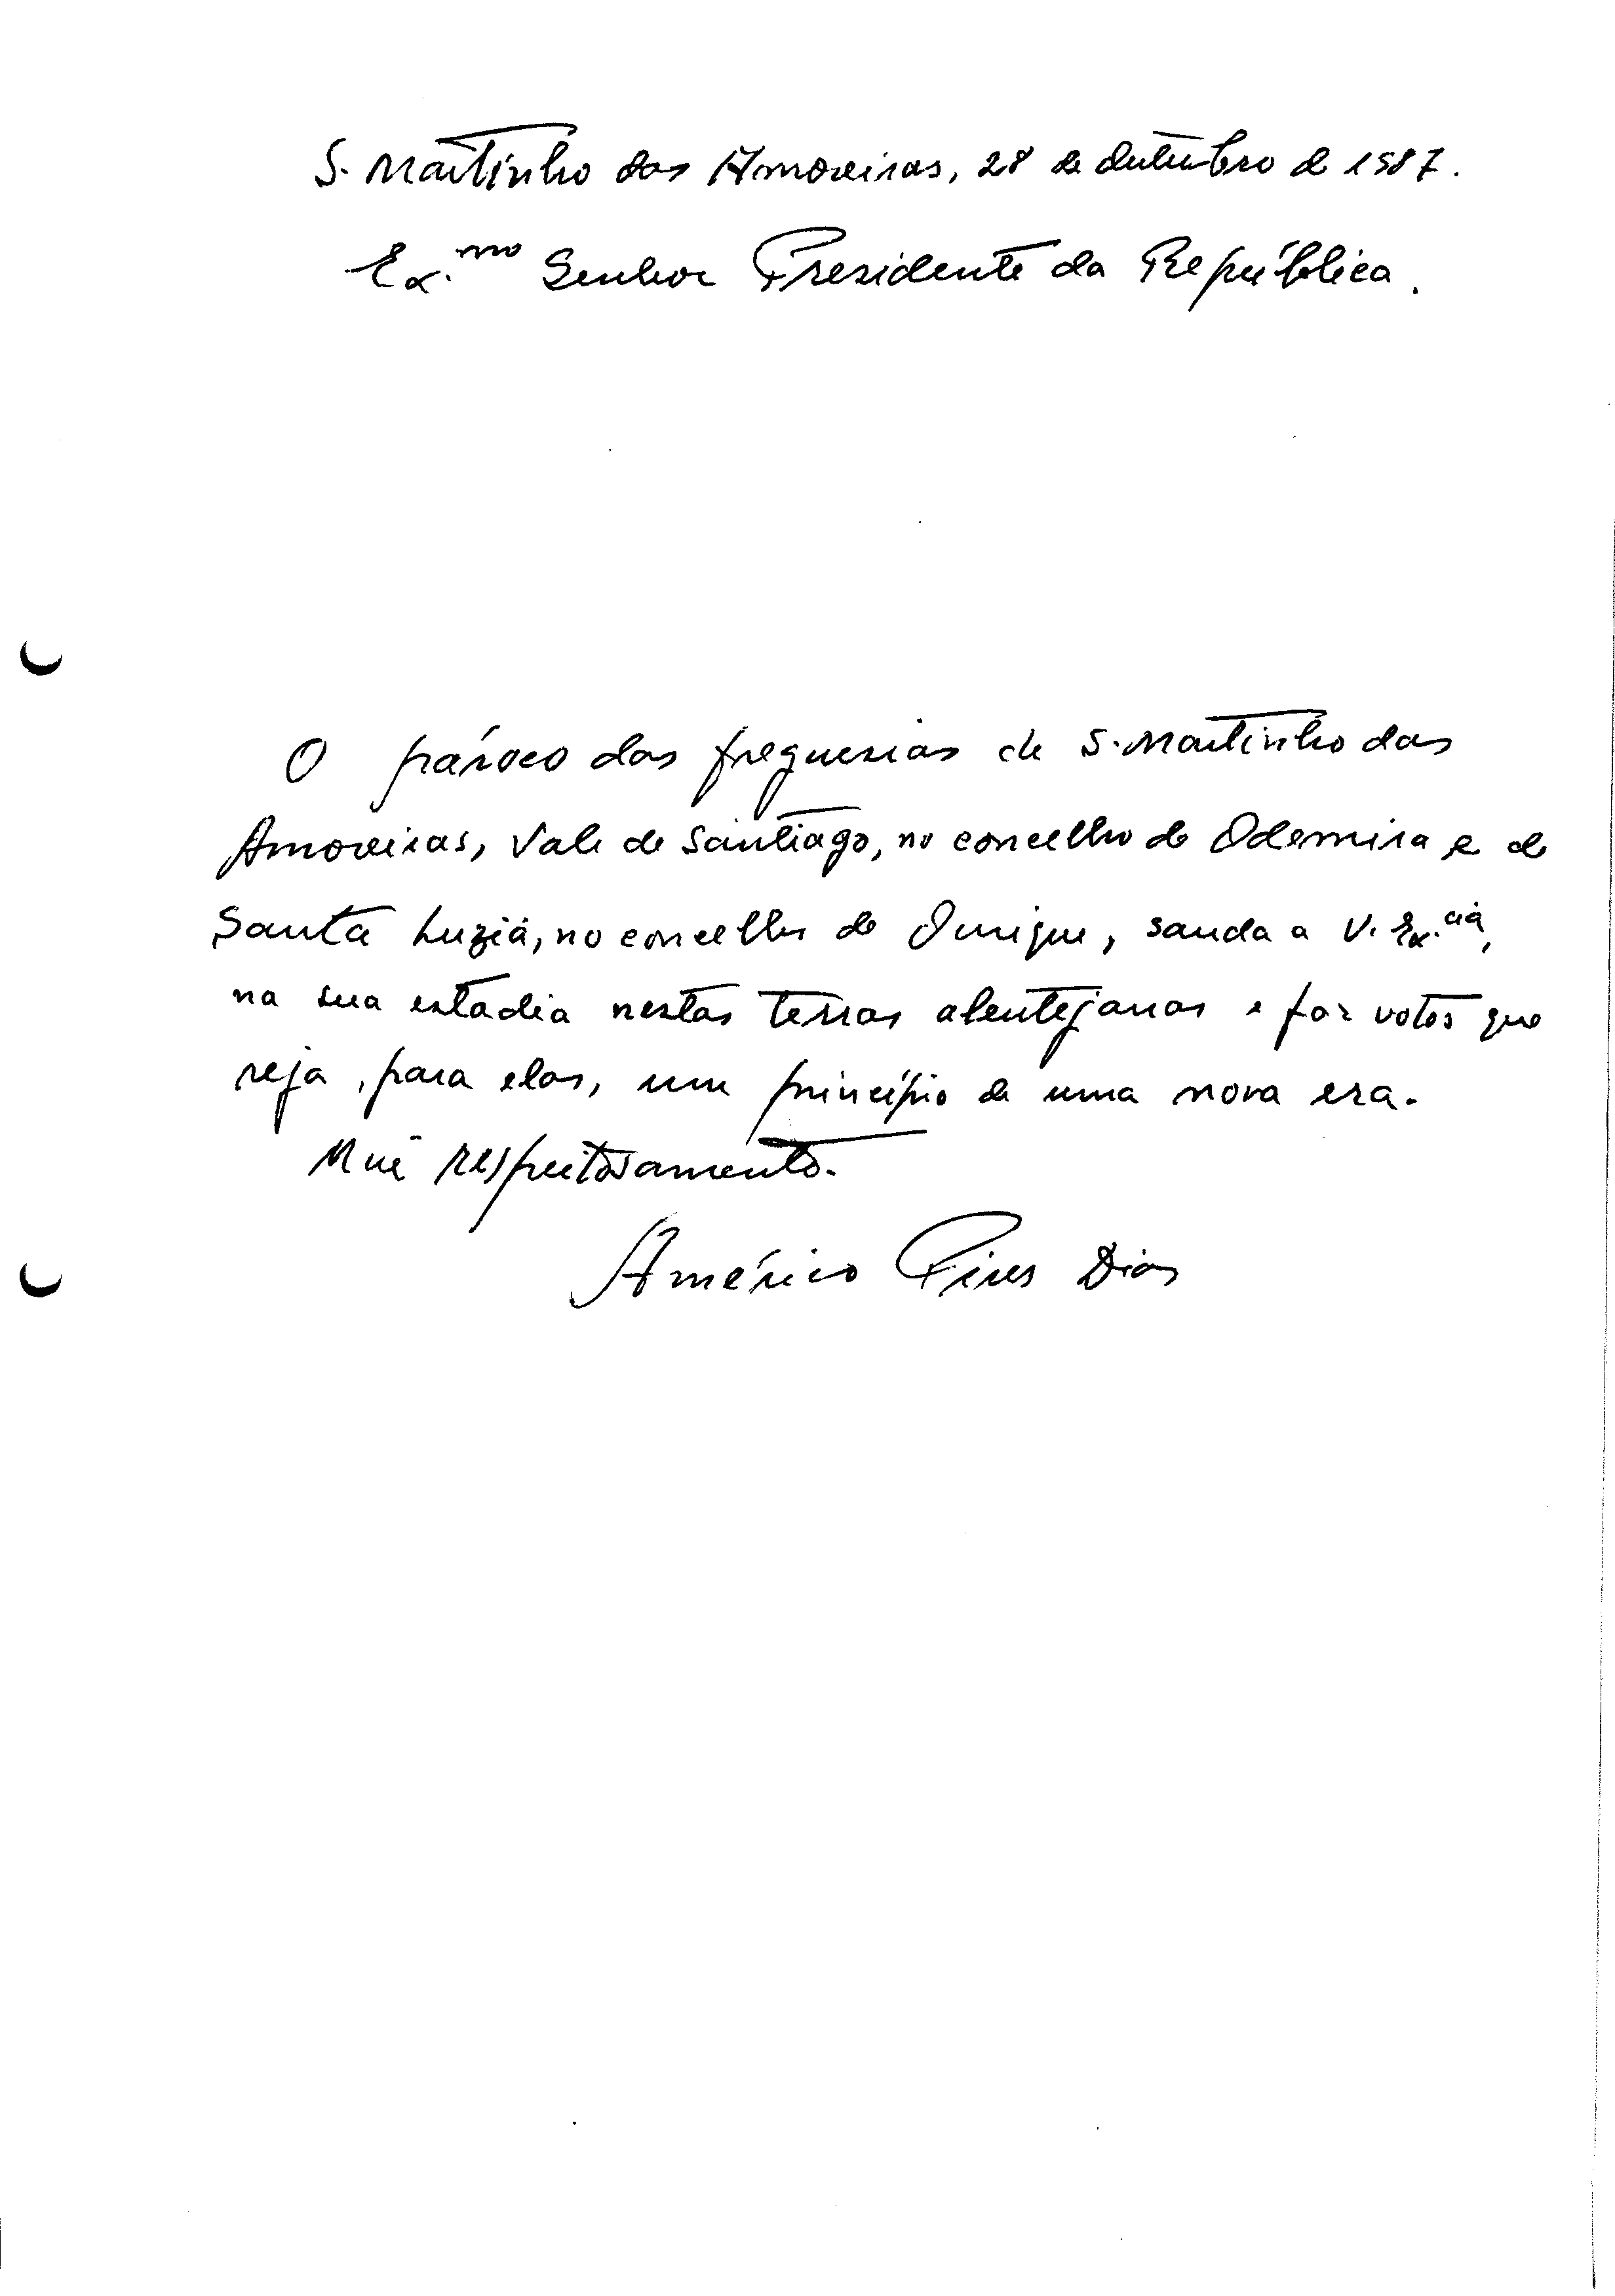 S. Martinho das Amoreiras, 28 de Outubro de 1987.
Ex.mo Senhor Presidente da República.
O pároco das freguesias de S. Martinho das
Amoreiras, Vale de Santiago, no concelho de Odemira e de
Santa Luzia, no concelho de Ourique, sauda a V. Ex.cia,
na sua estadia nestas terras alentejanas e faz votos que
seja, para elas, um princípio de uma nova era.
Mui respeitosamente.
Américo Pires Dias